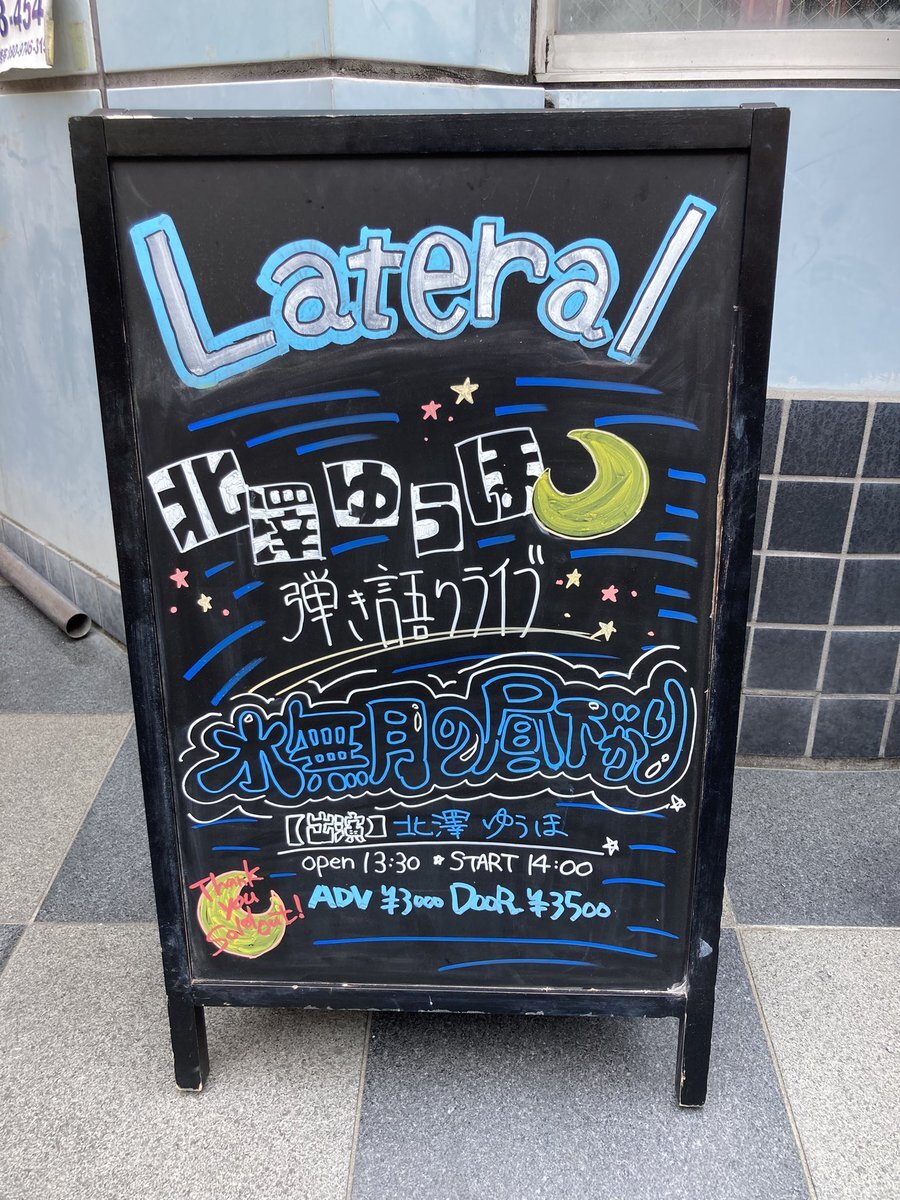 3-454
Lateral
北澤ゆうほ
弾き語りライブ
水無月の昼下がり
【出演】北澤 ゆうほ
open 13:30 ☆ START 14:00
ADV ¥3000 DOOR ¥3500
Thank
you
Sold out!